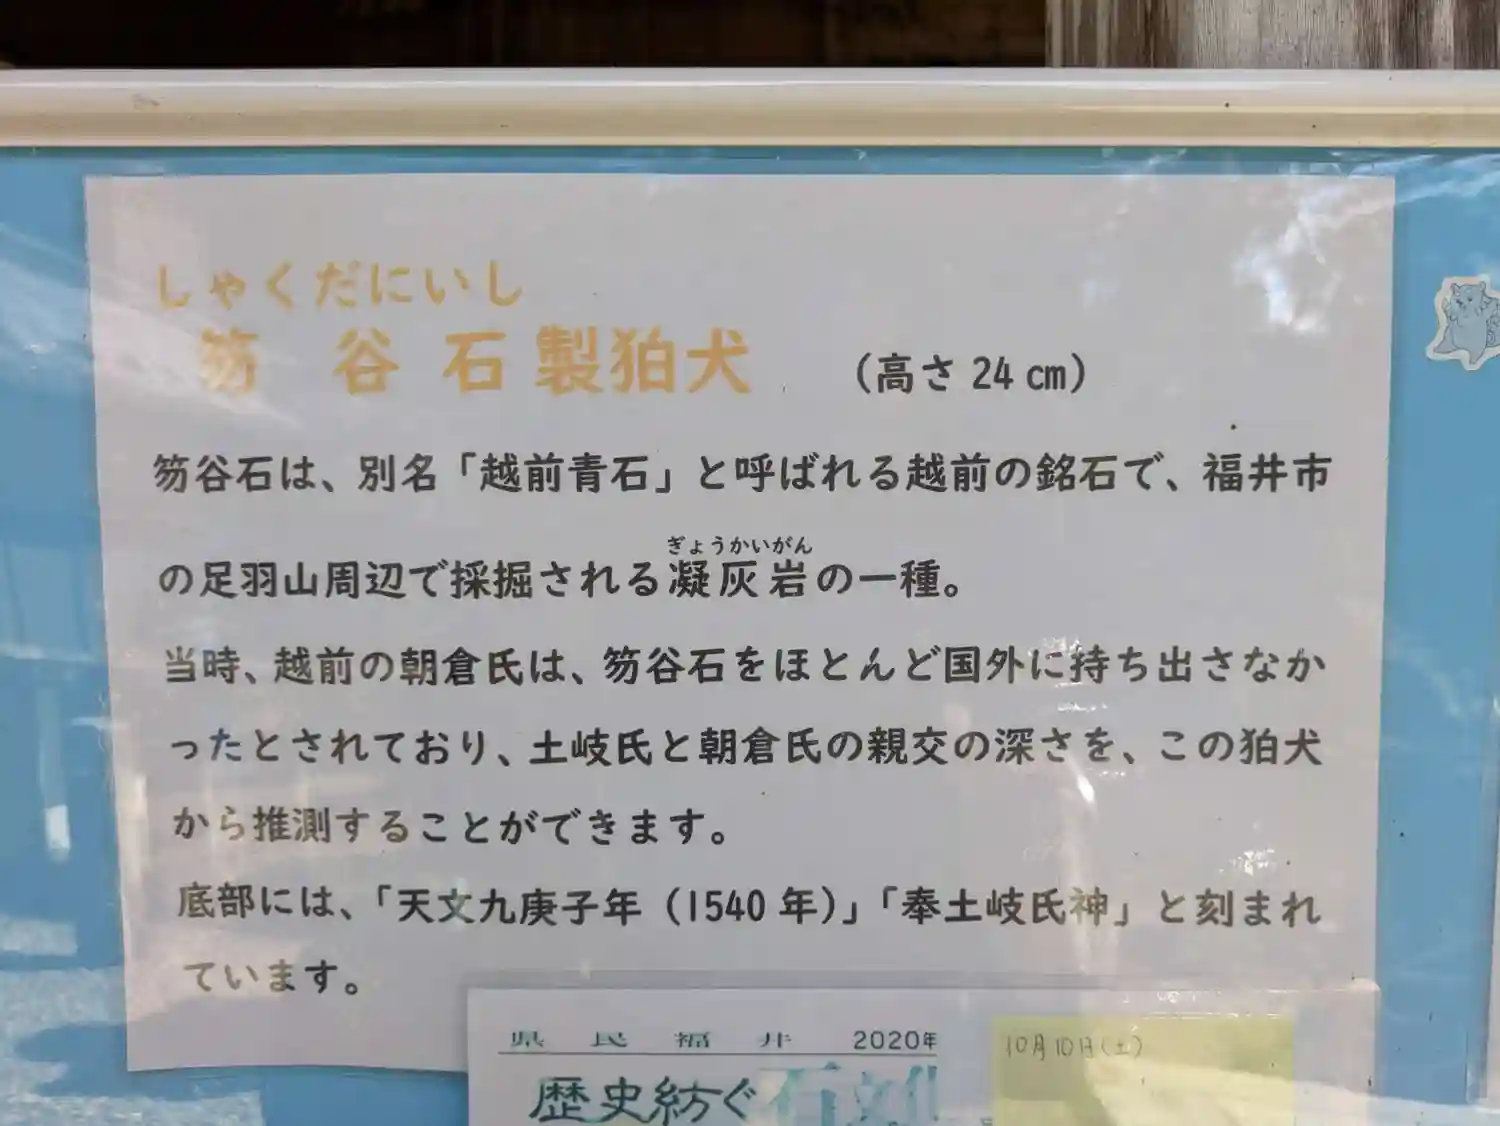 しゃくだにいし
笏谷石製狛犬 (高さ24㎝)
笏谷石は、別名「越前青石」と呼ばれる越前の銘石で、福井市
ぎょうかいがん
の足羽山周辺で採掘される凝灰岩の一種。
当時、越前の朝倉氏は、笏谷石をほとんど国外に持ち出さなか
ったとされており、土岐氏と朝倉氏の親交の深さを、この狛犬
から推測することができます。
底部には、「天文九庚子年(1540年)」「奉土岐氏神」と刻まれ
ています。
県民福井 2020年
10月10日(土)
歴史紡ぐ石文化